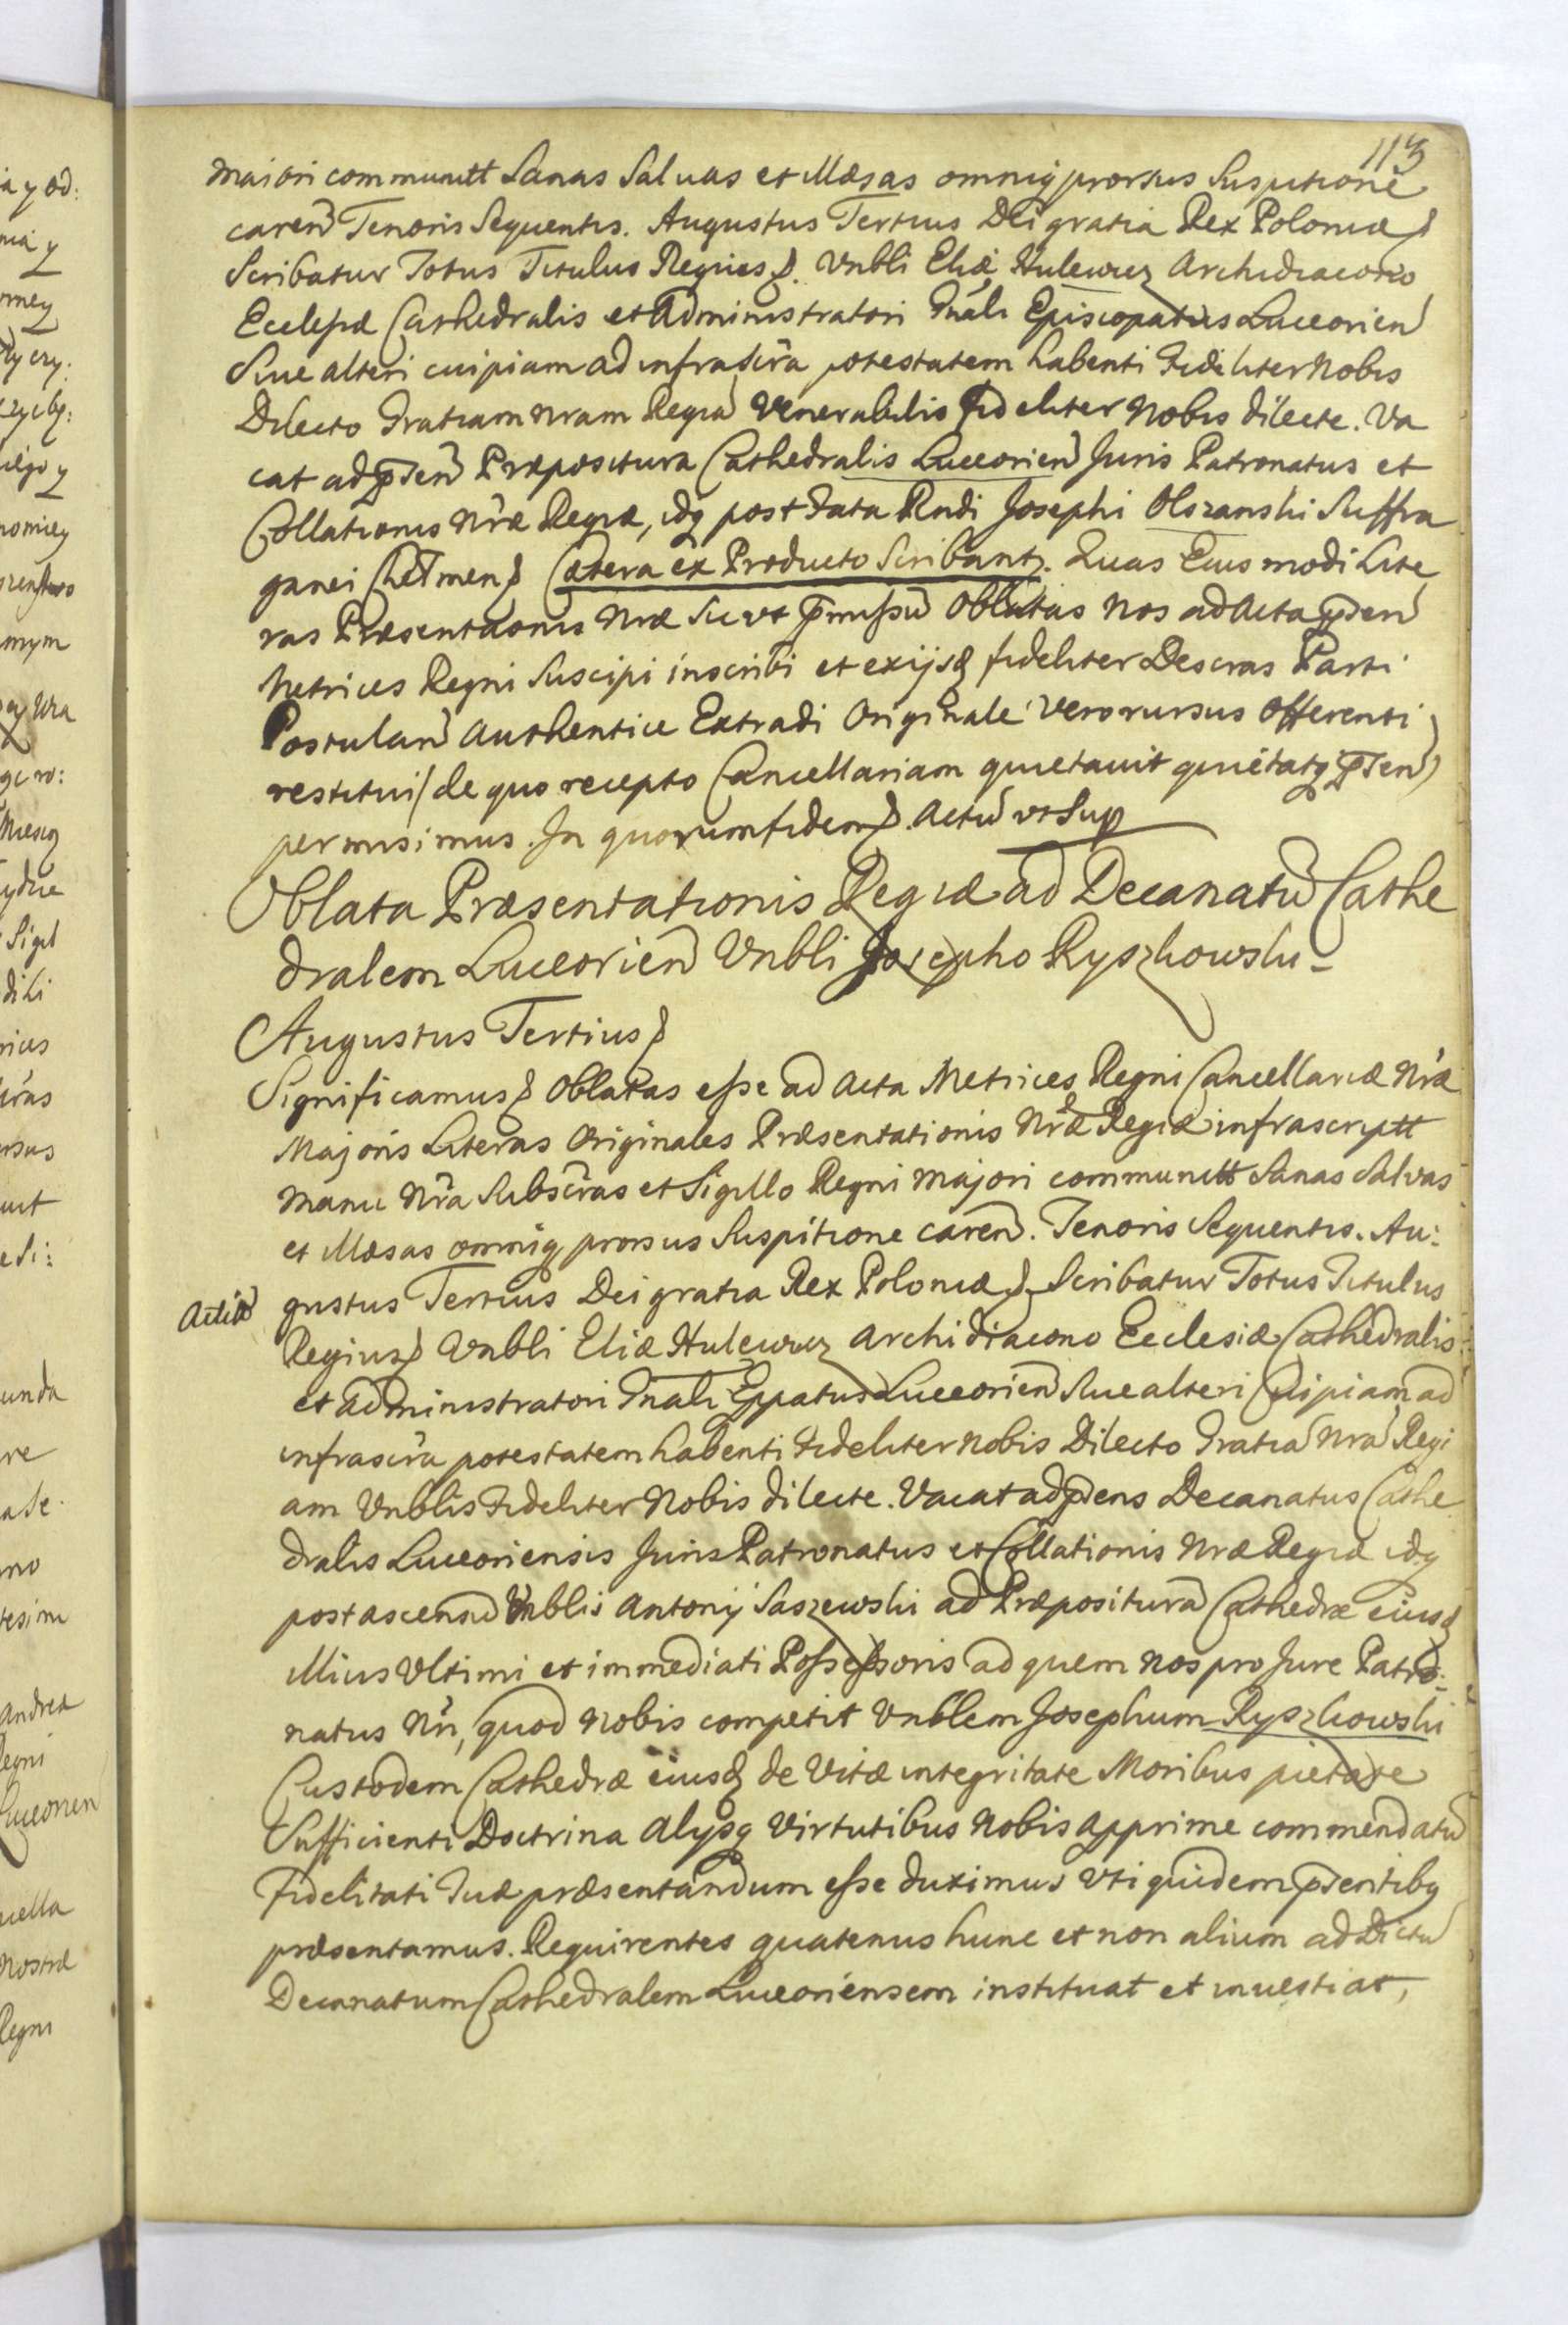 113
maiori communitt Sanas Saluas et Illæsas omniq prorsus Suspitione
caren̄ Tenoris Sequentis. Augustus Tertius Dei gratia Rex Poloniæ
Scribatur Totus Titulus Regius. Vnbli Eliæ Hulewicz Archidiacono
Ecclesiæ Cathedralis et Administratori Gnāli Episcopatus Luceorien̄
Siue alteri cuipiam ad infrascr̄a potestatem habenti Fideliter Nobis
Dilecto Gratiam nram Regiā Venerabilis Fideliter Nobis dilecte. Va
cat ad p̄sen̄ Præpositura Cathedralis Luceorien̄ Juris Patronatus et
Collationis Nr̄æ Regiæ, idq post Fata Rndi Josephi Olszanski Suffra
ganei Chełmen Cætera ex Producto Scribantr. Quas Eiusmodi Lite
ras Præsentaonis Nræ Sic vt p̄missū Oblatas Nos ad Acta p̄sen̄
Metrices Regni Suscipi inscribi et exijsq fideliter Descras Parti
Postulan̄ Authentice Extradi Originale vero rursus Offerenti
restitui / de quo recepto Cancellariam quietauit quietatq p̄sen̄ /
permisimus. In quorum fidem. Actū vt Sup
Oblata Præsentationis Regiæ ad Decanatū Cathe
dralem Luceorien̄ Vnbli Josepho Ryszkowski -
Augustus Tertius
Significamus Oblatas esse ad Acta Metrices Regni Cancellariæ Nr̄æ
Majoris Literas Originales Præsentationis Nr̄æ Regiæ infrascriptt
Manu Nr̄a Subscr̄as et Sigillo Regni Majori communitt Sanas Salvas
et Illæsas omniq prorsus Suspitione caren̄. Tenoris Sequentis. Au:
gustus Tertius Dei gratia Rex Poloniæ Scribatur Totus Titulus
Regius Vnbli Eliæ Hulewicz Archidiacono Ecclesiæ Cathedralis
et Administratori Gnali Eppatus Luceorien̄ Siue alteri Cuipiam ad
infrascr̄a potestatem habenti Fideliter Nobis Dilecto Gratiā Nrā Regi
am Vnblis Fideliter Nobis dilecte. Vacat ad p̄sens Decanatus Cathe
dralis Luceoriensis Juris Patronatus et Collationis Nræ Regiæ idq
post ascensū Vnblis Antonij Saszewski ad Præpositurā Cathedræ eiusq
illius Vltimi et immediati Possessoris ad quem Nos pro Jure Patro:
natus Nri, quod Nobis competit Vnblem Josephum Ryszkowski
Custodem Cathedræ eiusq de Vitæ integritate Moribus pietate
Sufficienti Doctrina Alijsq Virtutibus Nobis Apprime commendatū
Fidelitati Tuæ præsentandum esse duximus Vti quidem p̄sentibq
præsentamus. Requirentes quatenus hunc et non alium ad Dictū
Decanatum Cathedralem Luceoriensem instituat et inuestiat,